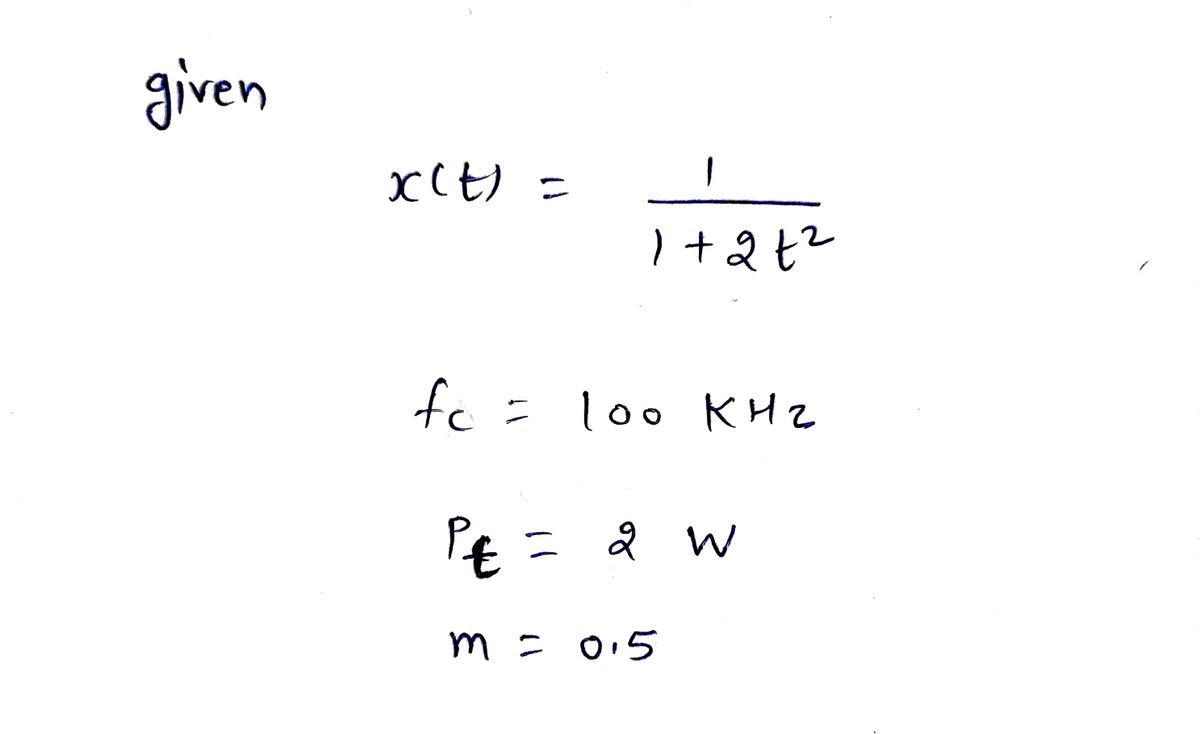 given
x(t) = 1 / 1 + 2t²
fc = 100 KHz
Pt = 2 W
m = 0.5